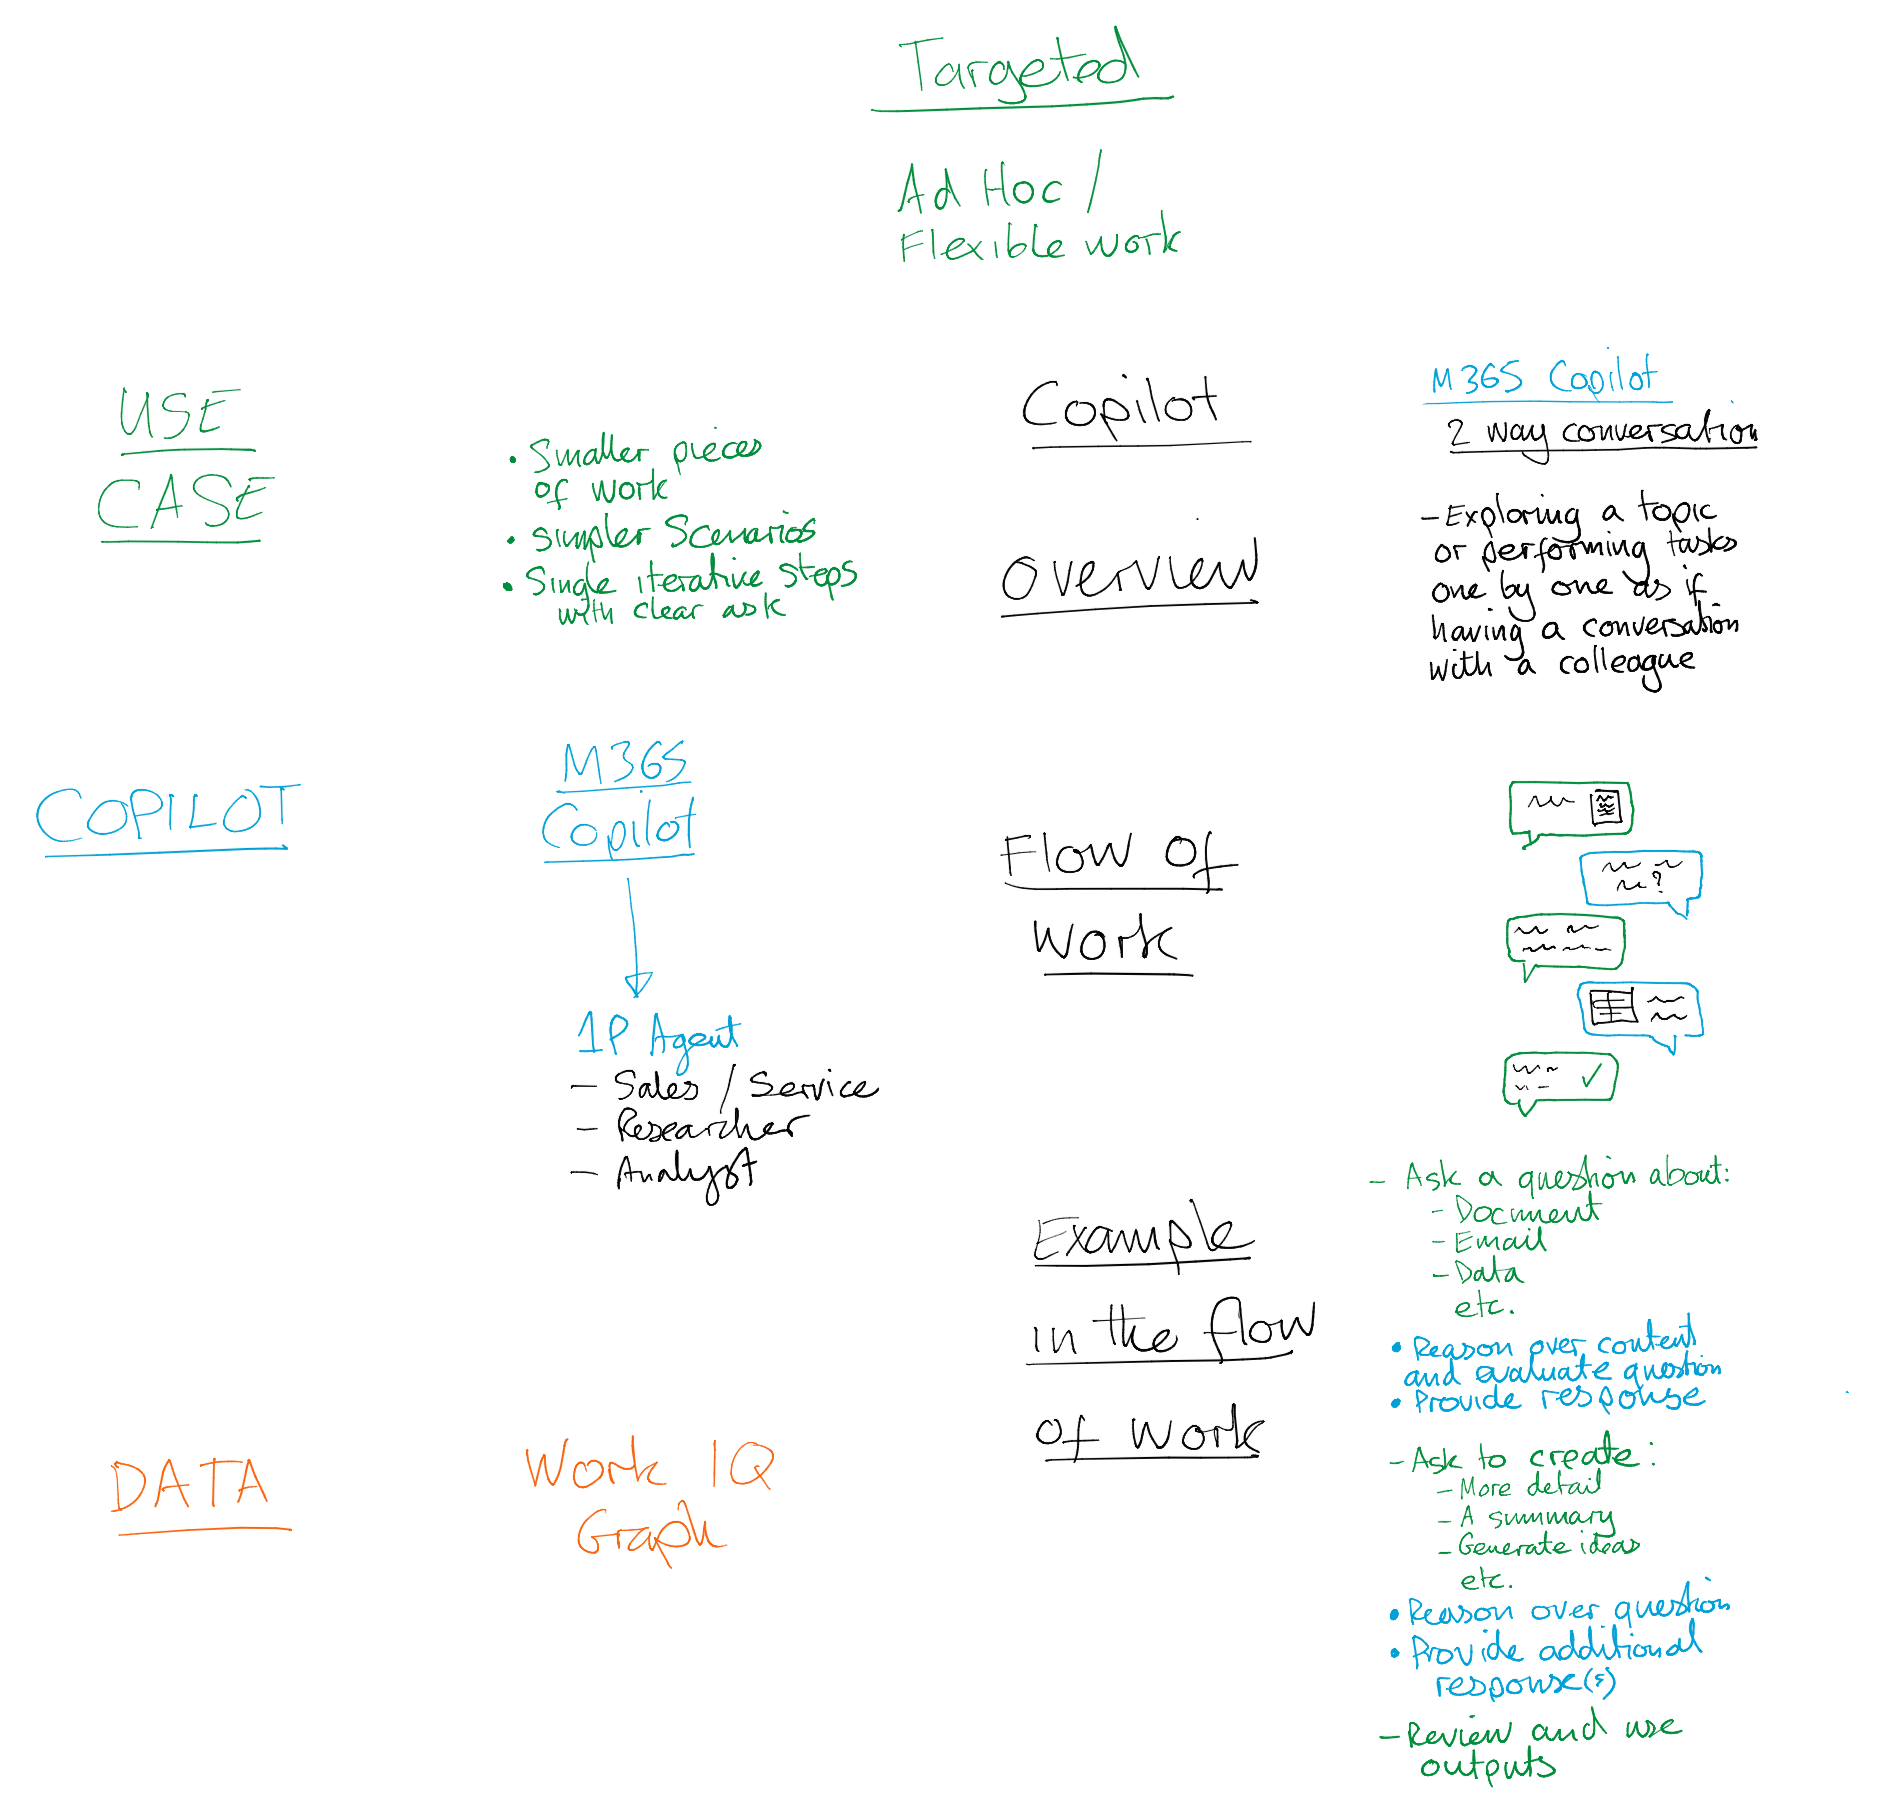 Targeted
Ad Hoc /
Flexible work
USE
CASE
• Smaller pieces
of work
• Simpler Scenarios
• Single iterative steps
with clear ask
COPILOT
M365
Copilot
1P Agent
- Sales / Service
- Researcher
- Analyst
DATA
Work IQ
Graph
Copilot
Overview
M365 Copilot
2 way conversation
- Exploring a topic
or performing tasks
one by one as if
having a conversation
with a colleague
Flow of
Work
?
Example
in the flow
of work
- Ask a question about:
- Document
- Email
- Data
etc.
• Reason over content
and evaluate question
• Provide response
- Ask to create:
- More detail
- A summary
- Generate ideas
etc.
• Reason over question
• Provide additional
response(s)
- Review and use
outputs